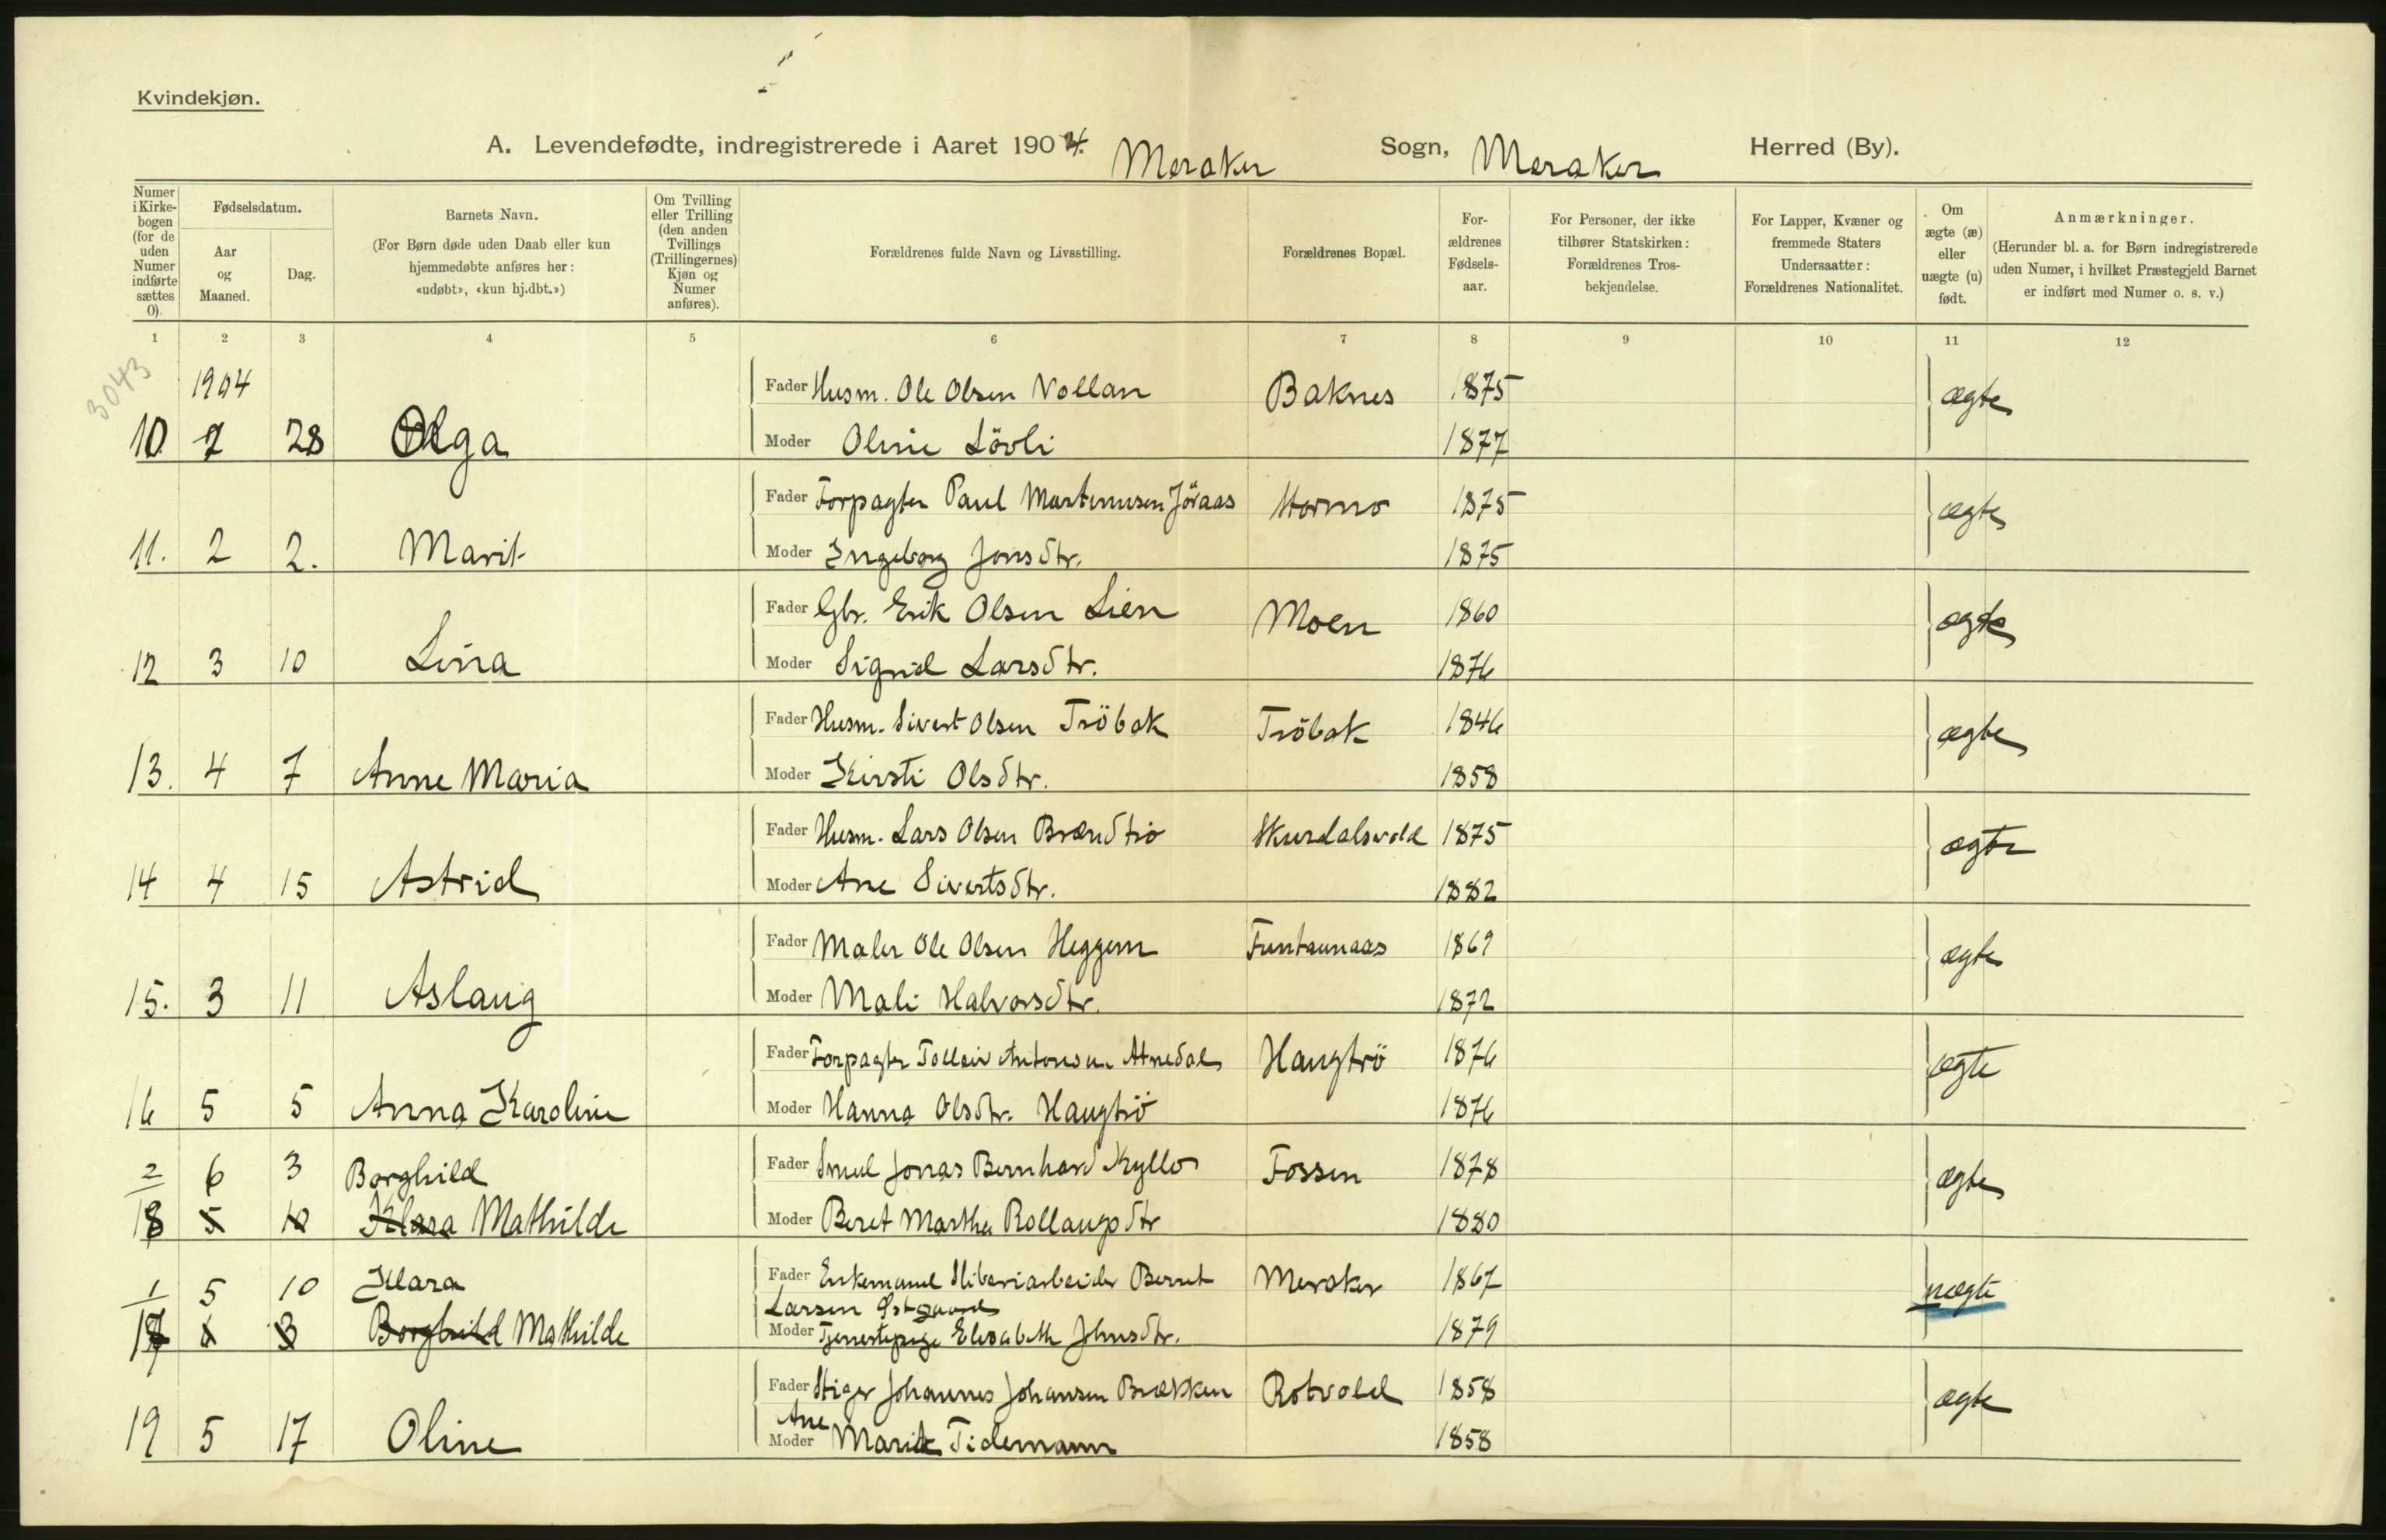 Kvindekjøn.
A. Levendefødte, indregistrerede i Aaret 1904. Meraker Sogn, Meraker Herred (By).
Numer i Kirkebogen (for de uden Numer indførte sættes 0).
Fødselsdatum.
Aar og Maaned.
Dag.
Barnets Navn.
(For Børn døde uden Daab eller kun hjemmedøbte anføres her: «udøbt», «kun hj.dbt.»)
Om Tvilling eller Trilling (den anden Tvillings (Trillingernes) Kjøn og Numer anføres).
Forældrenes fulde Navn og Livsstilling.
Forældrenes Bopæl.
Forældrenes Fødselsaar.
For Personer, der ikke tilhører Statskirken: Forældrenes Trosbekjendelse.
For Lapper, Kvæner og fremmede Staters Undersaatter: Forældrenes Nationalitet.
Om ægte (æ) eller uægte (u) født.
Anmærkninger.
(Herunder bl. a. for Børn indregistrerede uden Numer, i hvilket Præstegjeld Barnet er indført med Numer o. s. v.)
1 2 3 4 5 6 7 8 9 10 11 12
3043
1904 Fader Husm. Ole Olsen Vollan Baknes 1875 ægte
10 2 28 Olga Moder Oline Lövli 1877
Fader Forpagter Paul Martinusen Jöraas Stormo 1875 ægte
11. 2 2. Marit Moder Ingeborg Jonsdtr. 1875
Fader Gbr. Erik Olsen Lien Moen 1860 ægte
12 3 10 Lina Moder Sigrid Larsdtr. 1876
Fader Husm. Sivert Olsen Tröbak Tröbak 1846 ægte
13. 4 7 Anne Maria Moder Kirsti Olsdtr. 1858
Fader Husm. Lars Olsen Brændtrö Skurdalsvold 1875 ægte
14 4 15 Astrid Moder Ane Sivertsdtr. 1882
Fader Maler Ole Olsen Heggem Funtaunaas 1869 ægte
15. 3 11 Aslaug Moder Mali Halvorsdtr. 1872
Fader Forpagter Tolleiv Antonsen Atnedal Haugtrö 1876 ægte
16 5 5 Anna Karoline Moder Hanna Olsdtr. Haugtrö 1876
2 6 3 Borghild Fader Smed Jonas Bernhard Kyllo Fossen 1878 ægte
18 5 10 Klara Mathilde Moder Beret Martha Rollaugsdtr 1880
1 5 10 Klara Fader Enkemand Sliberiarbeider Bernt Meraker 1867 uægte
Larsen Östgaard
17 6 3 Borghild Mathilde Moder Tjenestepige Elisabeth Johnsdtr. 1879
Fader Stiger Johannes Johansen Brækken Rotvold 1858 ægte
Ane
19 5 17 Oline Moder Marit Tidemann 1858